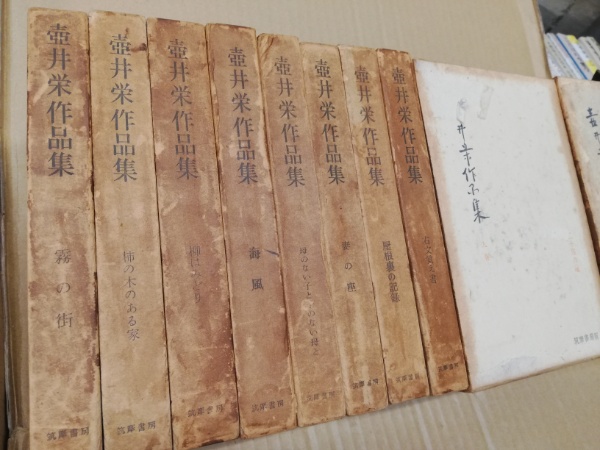 壺井栄作品集
霧の街
筑摩書房
壺井栄作品集
柿の木のある家
壺井栄作品集
筑摩書房
壺井栄作品集
海風
筑摩書房
壺井栄作品集
母のない子と子のない母と
筑摩書房
壺井栄作品集
筑摩書房
壺井栄作品集
屋根裏の記録
筑摩書房
壺井栄作品集
井栄作品集
筑摩書房